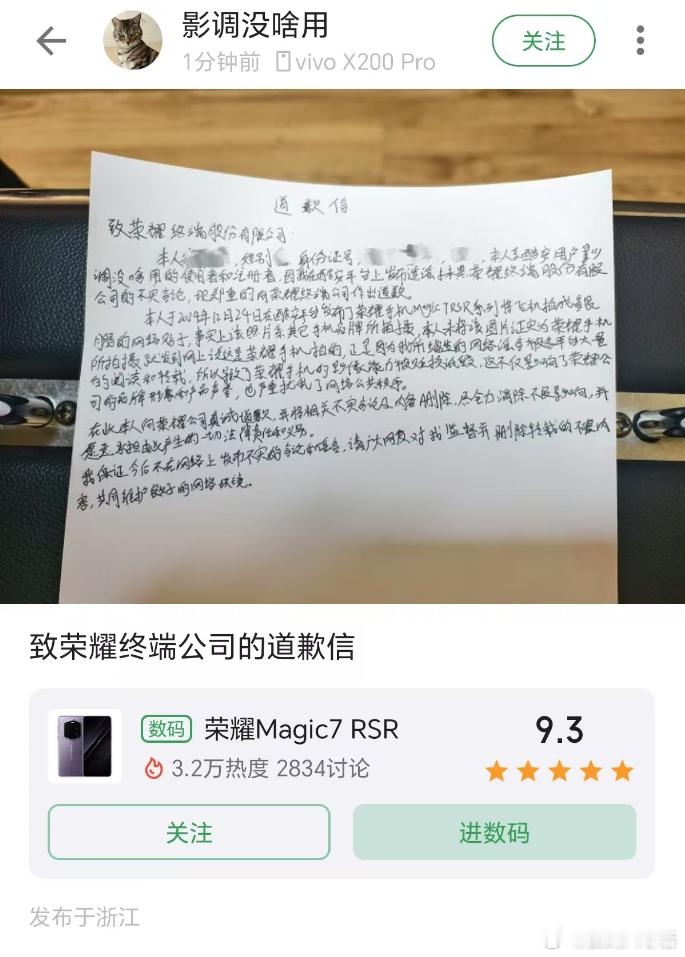 影调没啥用
1分钟前 vivo X200 Pro
关注
道歉信
致荣耀终端股份有限公司:
本人 性别 身份证号 本人系酷安用户影
调没啥用的使用者和注册者,因我在酷安平台上发布造谣抹黑荣耀终端股份有限
公司的不实言论,现郑重的向荣耀终端公司作出道歉。
本人于2024年12月24日在酷安平台发布了荣耀手机Magic7RSR系列将飞机拍成
的网络帖子,事实上该照片系其它手机品牌所拍摄,本人未将该图片证实为荣耀手机
所拍摄就发到网上说这是荣耀手机拍的,正是因为我所编造的网络谣言被各平台大量
的阅读和转载,所以导致了荣耀手机的影像能力被贬损诋毁,这不仅影响了荣耀公
司的品牌形象和产品声誉,也严重扰乱了网络公共秩序。
在此本人向荣耀公司真诚道歉,并将相关不实言论及内容删除,尽全力消除不良影响,并
愿意承担由此产生的一切法律责任和义务。
我保证今后不在网络上发布不实的言论和谣言,请广大网友对我监督并删除转载的不良内
容,共同维护良好的网络环境。
致荣耀终端公司的道歉信
数码 荣耀Magic7 RSR
9.3
3.2万热度 2834讨论
关注
进数码
发布于浙江